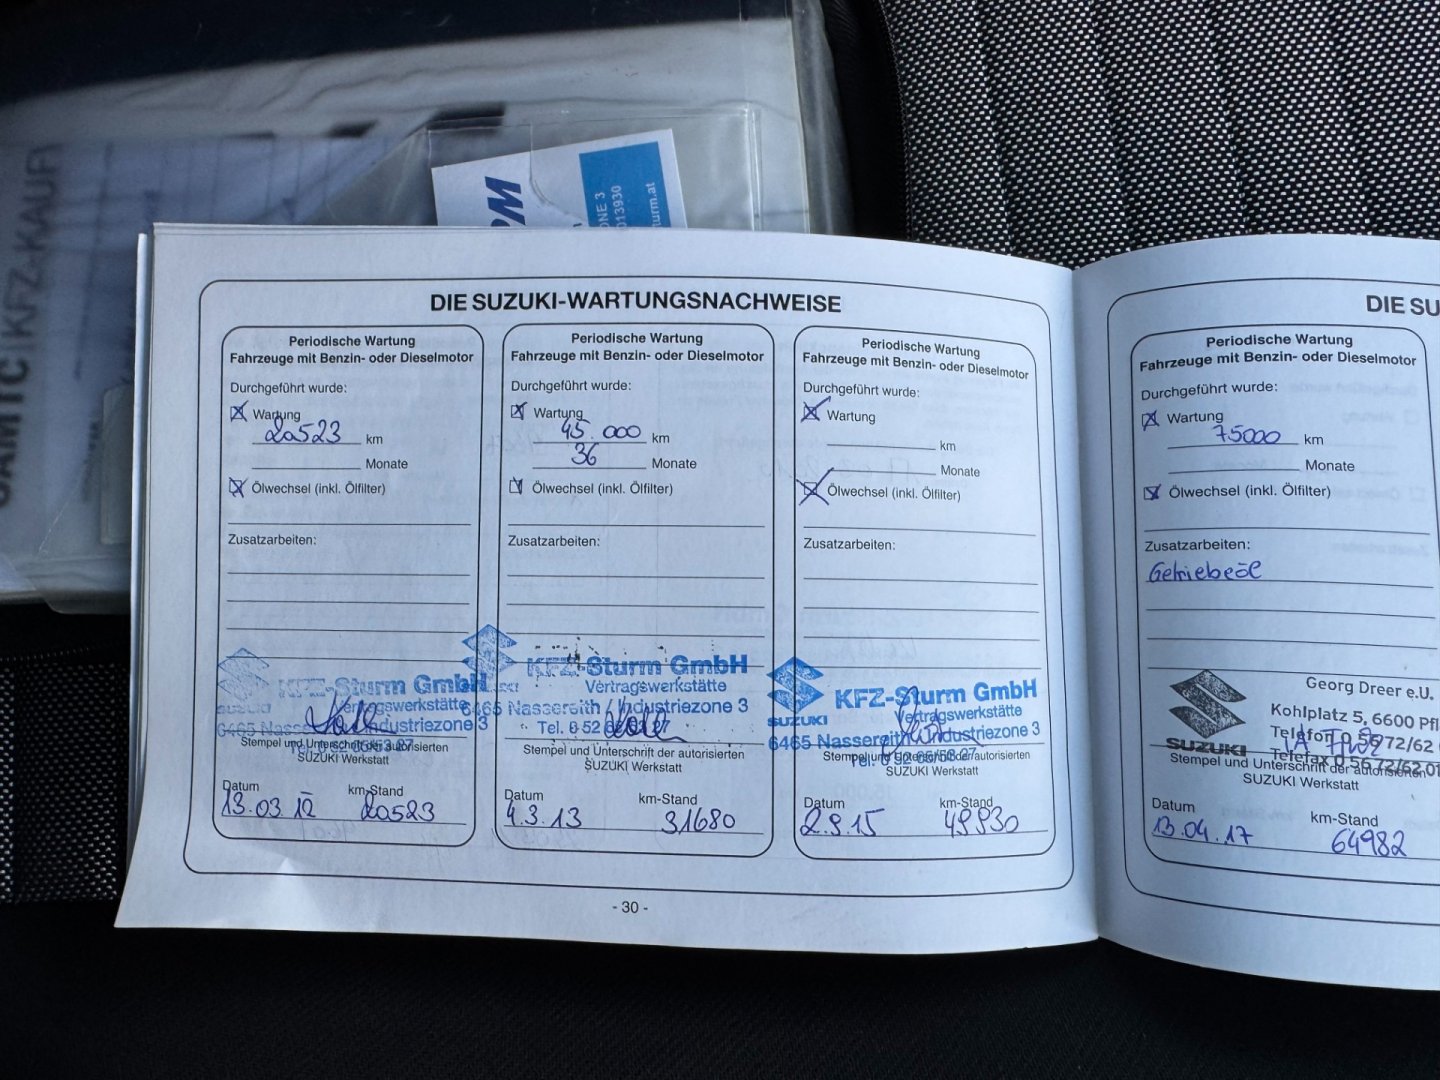 ÖAMTC | KFZ-KAUF
ONE 3
013930
turm.at
DIE SUZUKI-WARTUNGSNACHWEISE
Periodische Wartung
Fahrzeuge mit Benzin- oder Dieselmotor
Durchgeführt wurde:
Wartung
20523 km
Monate
Ölwechsel (inkl. Ölfilter)
Zusatzarbeiten:
KFZ-Sturm GmbH
SUZUKI Vertragswerkstätte
6465 Nassereith / Industriezone 3
Stempel und Unterschrift der autorisierten
SUZUKI Werkstatt
Datum km-Stand
13.03.12 20523
Periodische Wartung
Fahrzeuge mit Benzin- oder Dieselmotor
Durchgeführt wurde:
Wartung
45.000 km
36 Monate
Ölwechsel (inkl. Ölfilter)
Zusatzarbeiten:
KFZ-Sturm GmbH
Vertragswerkstätte
6465 Nassereith / Industriezone 3
Tel. 0 52
Stempel und Unterschrift der autorisierten
SUZUKI Werkstatt
Datum km-Stand
4.3.13 31680
Periodische Wartung
Fahrzeuge mit Benzin- oder Dieselmotor
Durchgeführt wurde:
Wartung
km
Monate
Ölwechsel (inkl. Ölfilter)
Zusatzarbeiten:
KFZ-Sturm GmbH
SUZUKI Vertragswerkstätte
6465 Nassereith / Industriezone 3
Stempel und Unterschrift der autorisierten
SUZUKI Werkstatt
Datum km-Stand
2.9.15 49930
- 30 -
DIE SU
Periodische Wartung
Fahrzeuge mit Benzin- oder Dieselmotor
Durchgeführt wurde:
Wartung
75000 km
Monate
Ölwechsel (inkl. Ölfilter)
Zusatzarbeiten:
Getriebeöl
Georg Dreer e.U.
Kohlplatz 5, 6600 Pfl
SUZUKI Telefon 0 56 72/62
Telefax 0 56 72/62 01
Stempel und Unterschrift der autorisierten
SUZUKI Werkstatt
Datum km-Stand
13.04.17 64982